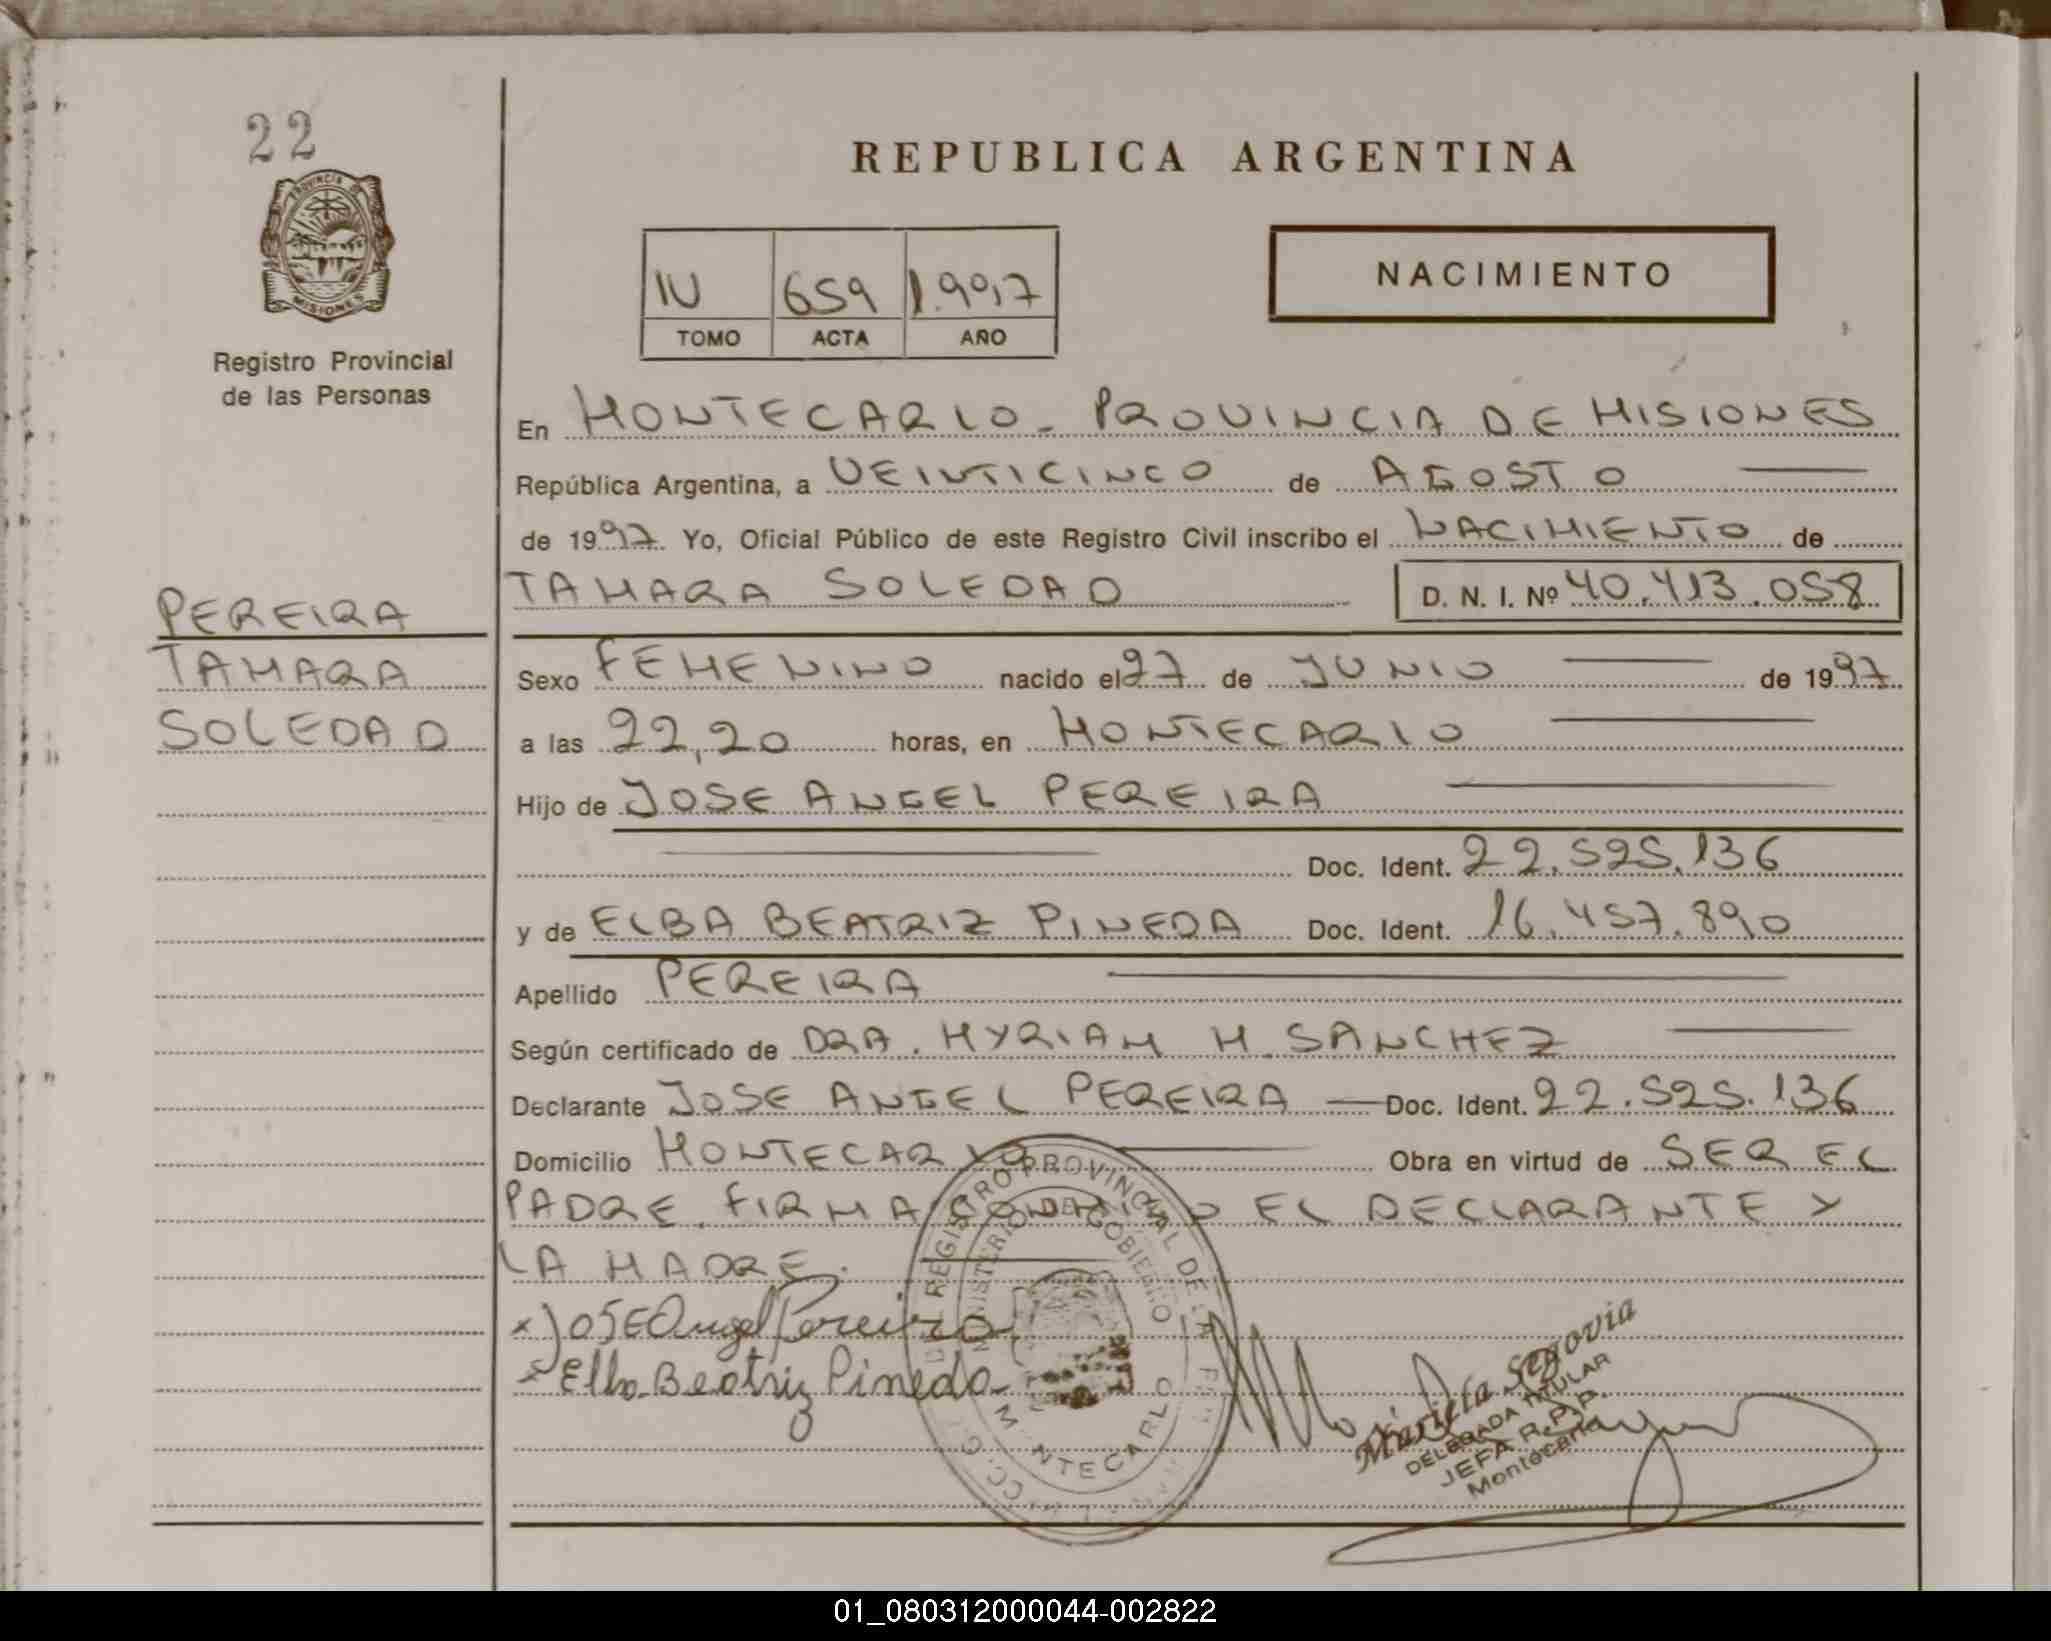 22
PROVINCIA DE
MISIONES
Registro Provincial
de las Personas
PEREIRA
TAMARA
SOLEDAD
REPUBLICA ARGENTINA
IV 659 1.99,7
TOMO ACTA AÑO
NACIMIENTO
En MONTECARLO - PROVINCIA DE MISIONES
República Argentina, a VEINTICINCO de AGOSTO
de 1997 Yo, Oficial Público de este Registro Civil inscribo el NACIMIENTO de
TAMARA SOLEDAD D. N. I. Nº 40.413.058
Sexo FEMENINO nacido el 27 de JUNIO de 1997
a las 22,20 horas, en MONTECARLO
Hijo de JOSE ANGEL PEREIRA
Doc. Ident. 22.525.136
y de ELBA BEATRIZ PINEDA Doc. Ident. 16.457.890
Apellido PEREIRA
Según certificado de DRA. MYRIAM M. SANCHEZ
Declarante JOSE ANGEL PEREIRA — Doc. Ident. 22.525.136
Domicilio MONTECARLO Obra en virtud de SER EL
PADRE. FIRMA CONMIGO EL DECLARANTE Y
LA MADRE.
x José Angel Pereira
x Elba Beatriz Pineda
REGISTRO PROVINCIAL DE LA
MINISTERIO DE GOBIERNO
MONTECARLO
Segovia
DELEGADA TITULAR
JEFA R.P.P.
Montecarlo
01_080312000044-002822